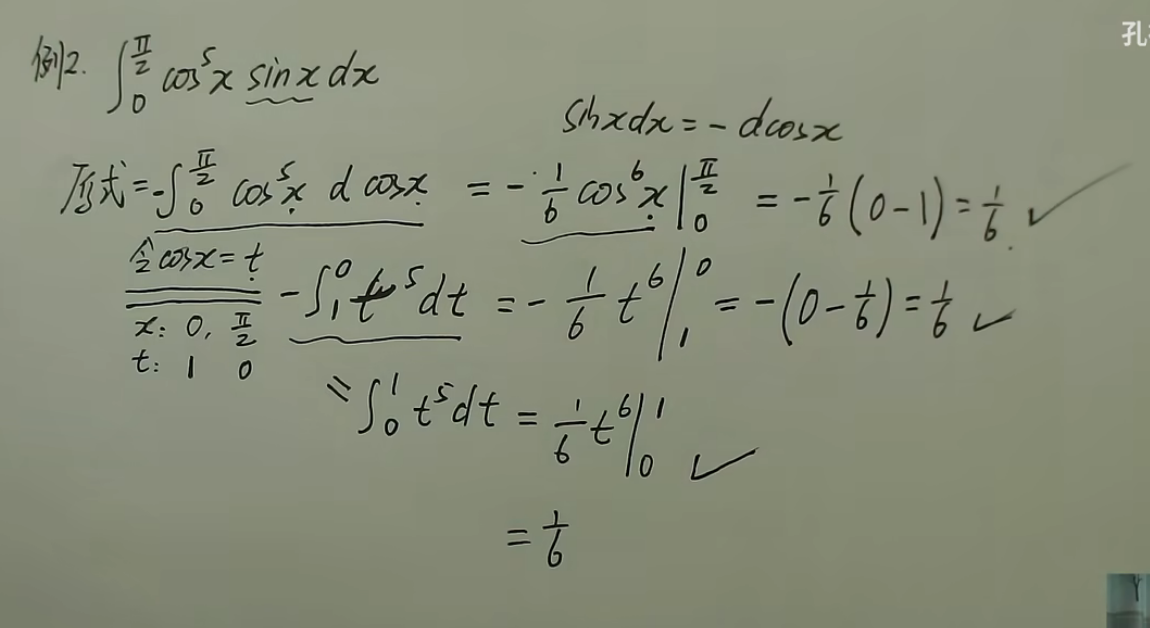 孔
例2. ∫₀^{π/2} cos⁵x sinx dx
sinxdx = - dcosx
原式 = -∫₀^{π/2} cos⁵x d cosx = - 1/6 cos⁶x |₀^{π/2} = - 1/6 (0-1) = 1/6 ✓
令cosx = t
-∫₁⁰ t⁵dt = - 1/6 t⁶ |₁⁰ = -(0 - 1/6) = 1/6 ✓
x: 0, π/2
t: 1 0
= ∫₀¹ t⁵dt = 1/6 t⁶ |₀¹ ✓
= 1/6